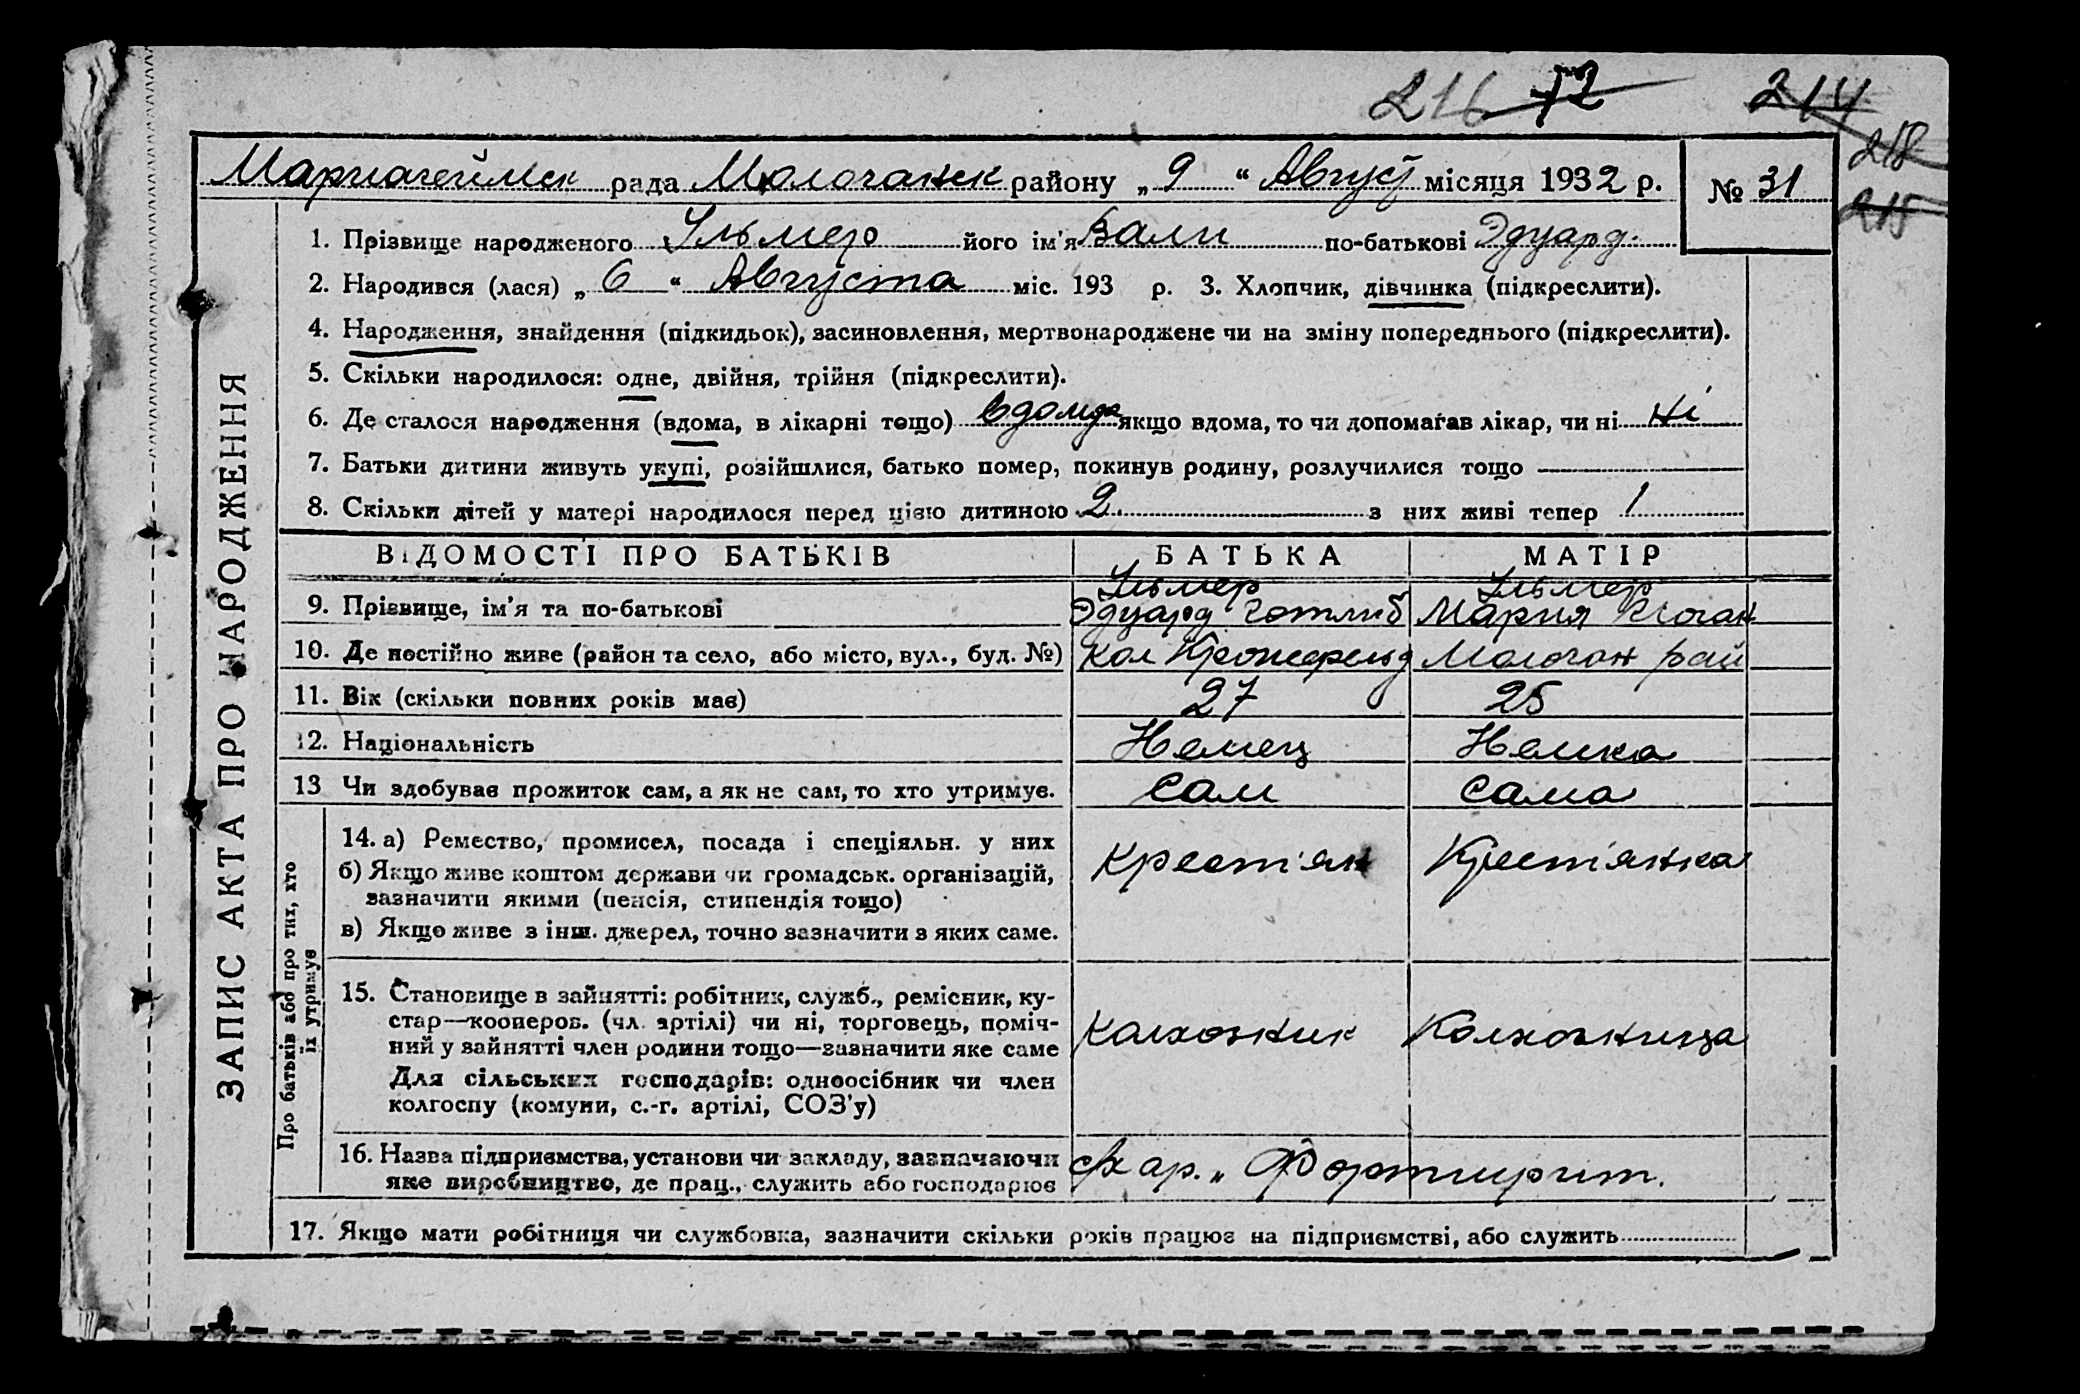 216 12 214
218
215
Мариагеймск рада Молочанск району „ 9 “ Август місяця 1932 р. № 31
1. Прізвище народженого Ульмер його ім'я Вали по-батькові Эдуард.
2. Народився (лася) „ 6 “ Августа міс. 193 р. 3. Хлопчик, дівчинка (підкреслити).
4. Народження, знайдення (підкидьок), засиновлення, мертвонароджене чи на зміну попереднього (підкреслити).
5. Скільки народилося: одне, двійня, трійня (підкреслити).
6. Де сталося народження (вдома, в лікарні тощо) вдома якщо вдома, то чи допомагав лікар, чи ні ні
7. Батьки дитини живуть укупі, розійшлися, батько помер, покинув родину, розлучилися тощо
8. Скільки дітей у матері народилося перед цією дитиною 2 з них живі тепер 1
ЗАПИС АКТА ПРО НАРОДЖЕННЯ
ВІДОМОСТІ ПРО БАТЬКІВ БАТЬКА МАТІР
Ульмер Ульмер
9. Прізвище, ім'я та по-батькові Эдуард Готлиб Мария Иоган
10. Де постійно живе (район та село, або місто, вул., буд. №) Кол Молочан рай
11. Вік (скільки повних років має) 27 25
12. Національність Немец Немка
13 Чи здобуває прожиток сам, а як не сам, то хто утримує. Сам Сама
Про батьків або про тих, хто
їх утримує
14. а) Ремество, промисел, посада і спеціяльн. у них Крест'ян Крест'янка
б) Якщо живе коштом держави чи громадськ. організацій,
зазначити якими (пенсія, стипендія тощо)
в) Якщо живе з інш. джерел, точно зазначити з яких саме.
15. Становище в зайнятті: робітник, служб., ремісник, ку-
стар—коопероз. (чл. артілі) чи ні, торговець, поміч-
ний у зайнятті член родини тощо—зазначити яке саме Колхозник Колхозница
Для сільських господарів: одноосібник чи член
колгоспу (комуни, с.-г. артілі, СОЗ'у)
16. Назва підприємства, установи чи закладу, зазначаючи с/х ар. „ Фортшрит.
яке виробництво, де прац., служить або господарює
17. Якщо мати робітниця чи службовка, зазначити скільки років працює на підприємстві, або служить